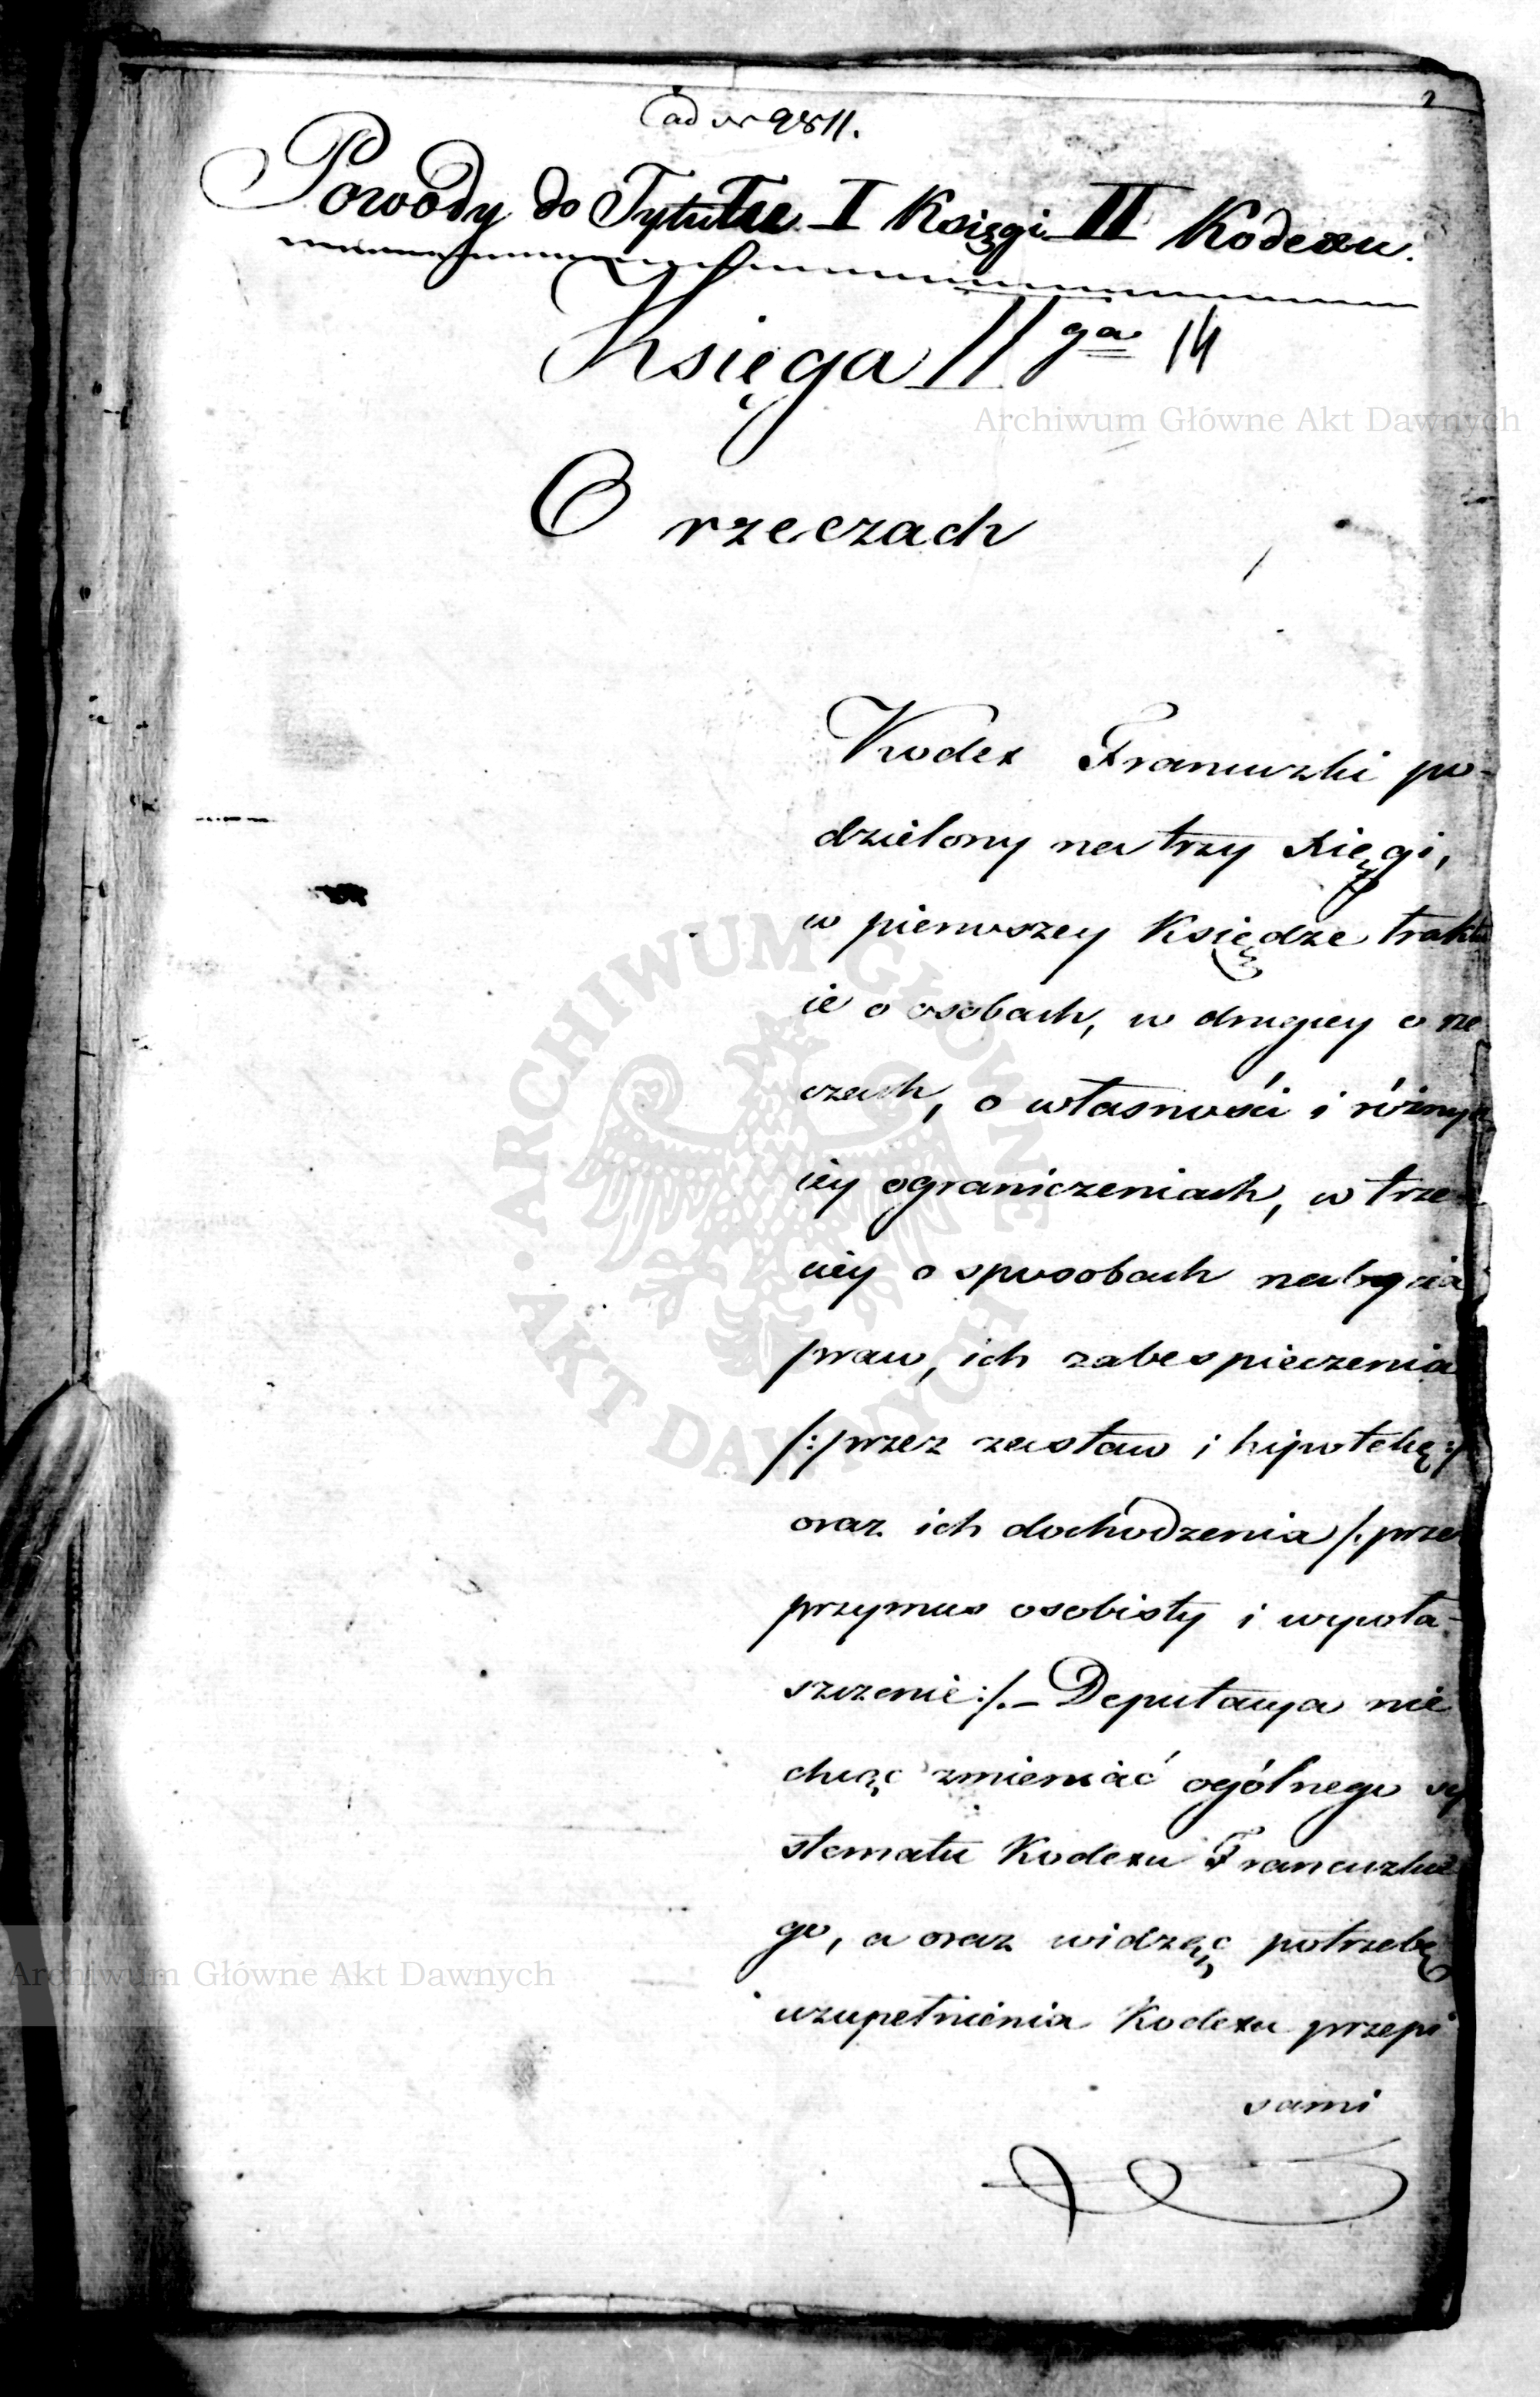 2
ad nr 9811.
Powody do Tytułu I Księgi II Kodexu.
Księga II ga 14
Archiwum Główne Akt Dawnych
O rzeczach
Kodex Francuzki po-
dzielony na trzy Księgi,
w pierwszey Księdze traktu
ie o osobach, w drugiey o rze
czach, o własności i różnych
iey ograniczeniach, w trze-
ciey o sposobach nabycia
praw, ich zabespieczenia
/: przez zastaw i hipotekę :/
oraz ich dochodzenia /: przez
przymus osobisty i wywła-
szczenie :/. – Deputacya nie
chcąc zmieniać ogólnego sy
stematu Kodexu Francuzkie
go, a oraz widząc potrzebę
Archiwum Główne Akt Dawnych
uzupełnienia Kodexu przepi
sami
ARCHIWUM GŁÓWNE AKT DAWNYCH